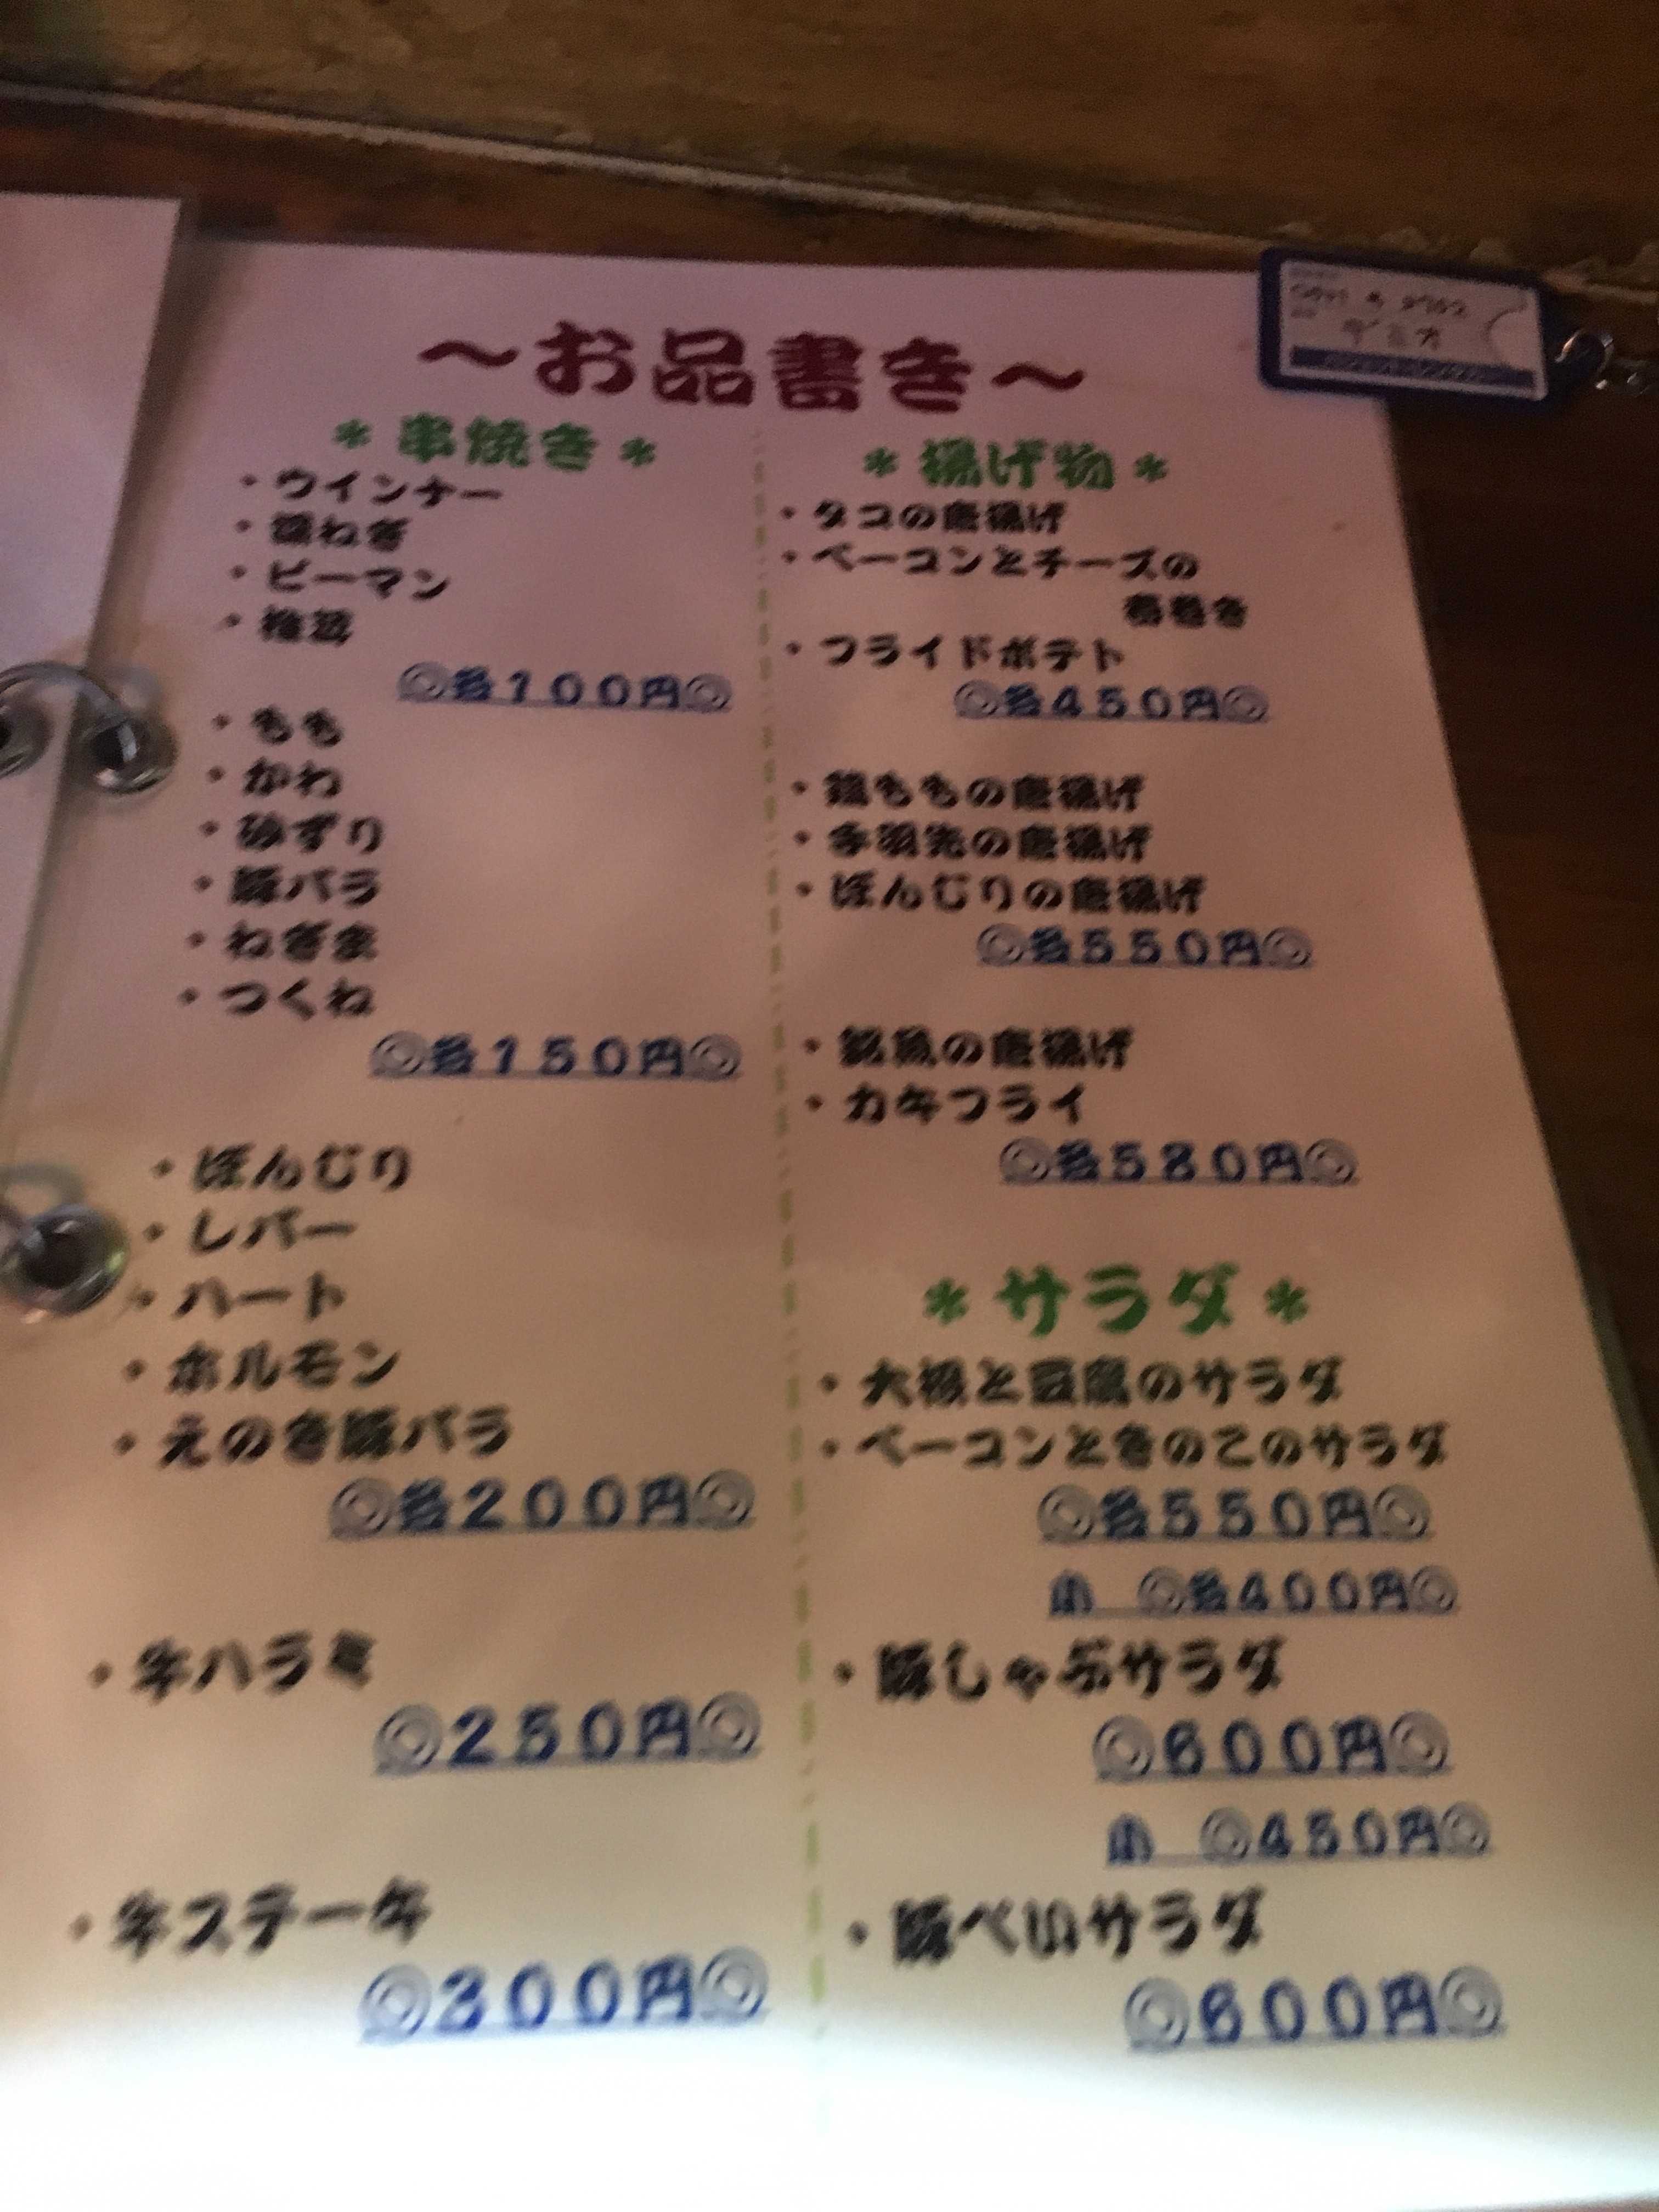 ～お品書き～
＊串焼き＊
・ウインナー
・深ねぎ
・ピーマン
・椎茸
◎各１００円◎
・もも
・かわ
・砂ずり
・豚バラ
・ねぎま
・つくね
◎各１５０円◎
・ぼんじり
・レバー
・ハート
・ホルモン
・えのき豚バラ
◎各２００円◎
・牛ハラミ
◎２５０円◎
・牛ステーキ
◎３００円◎
＊揚げ物＊
・タコの唐揚げ
・ベーコンとチーズの
春巻き
・フライドポテト
◎各４５０円◎
・鶏ももの唐揚げ
・手羽先の唐揚げ
・ぼんじりの唐揚げ
◎各５５０円◎
・銘魚の唐揚げ
・カキフライ
◎各５８０円◎
＊サラダ＊
・大根と豆腐のサラダ
・ベーコンときのこのサラダ
◎各５５０円◎
小 ◎各４００円◎
・豚しゃぶサラダ
◎６００円◎
小 ◎４５０円◎
・豚ぺいサラダ
◎６００円◎
デミオ